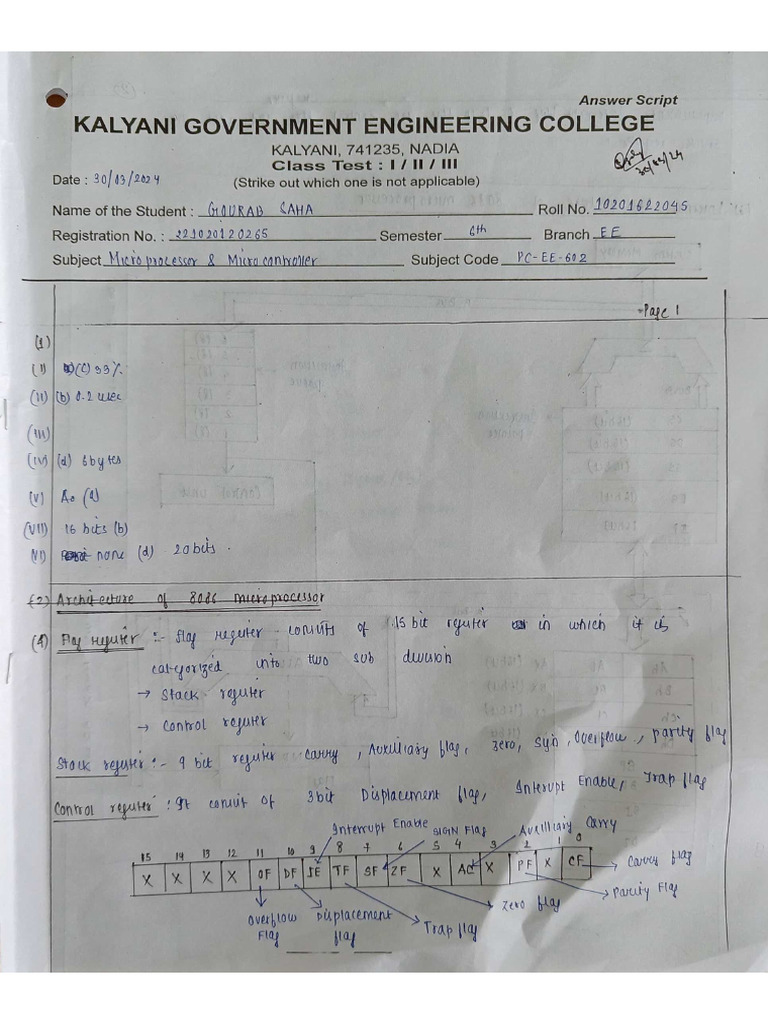 Answer Script
KALYANI GOVERNMENT ENGINEERING COLLEGE
KALYANI, 741235, NADIA
Class Test : I / II / III
30/03/24
Date : 30/03/2024
(Strike out which one is not applicable)
Name of the Student : GOURAB SAHA Roll No. 10201622045
Registration No. : 221020120265 Semester 6th Branch EE
Subject Microprocessor & Microcontroller Subject Code PC-EE-602
Page 1
(1)
(I) (c) 33%
(II) (b) 0.2 usec
(III)
(IV) (d) 6 bytes
(V) A0 (a)
(VII) 16 bits (b)
VI) none (d) 20 bits.
(2) Architecture of 8086 microprocessor
(4) Flag register :- flag register consists of 15 bit register in which it is
categorized into two sub division
→ Stack register
→ Control register
Stack register :- 9 bit register carry, Auxilliary flag, zero, Sign, Overflow, parity flag
Control register : It consist of 3bit Displacement flag, Interupt Enable, Trap flag
Interrupt Enable SIGN Flag Auxilliary Carry
15 14 13 12 11 10 9 8 7 6 5 4 3 2 1 0
X X X X OF DF IE TF SF ZF X AC X PF X CF
Carry flag
Parity Flag
Zero flag
Overflow Flag Displacement flag Trap flag